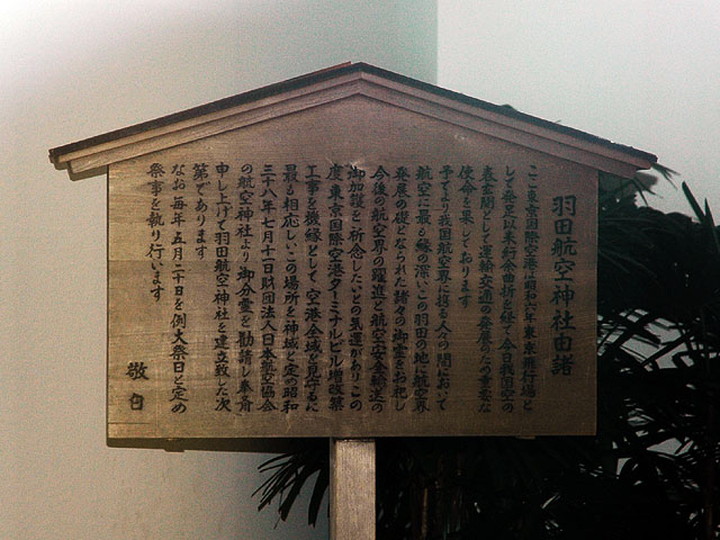 羽田航空神社由緒
ここ東京国際空港は昭和六年東京飛行場と
して発足以来紆余曲折を経て今日我国空の
表玄関として運輸交通の発展の為の重要な
使命を果しております
予てより我国航空界に携る人々の間において
航空に最も縁の深いこの羽田の地に航空界
発展の礎となられた諸々の御霊をお祀し
今後の航空界の躍進と航空安全輸送の
御加護を祈念したいとの気運がありこの
度東京国際空港ターミナルビル増改築
工事を機縁として空港全域を見守るに
最も相応しいこの場所を神域と定め昭和
三十八年七月十一日財団法人日本航空協会
の航空神社より御分霊を勧請し奉斎
申し上げて羽田航空神社を建立致した次
第であります
なお毎年五月二十日を例大祭日と定め
祭事を執り行います
敬白